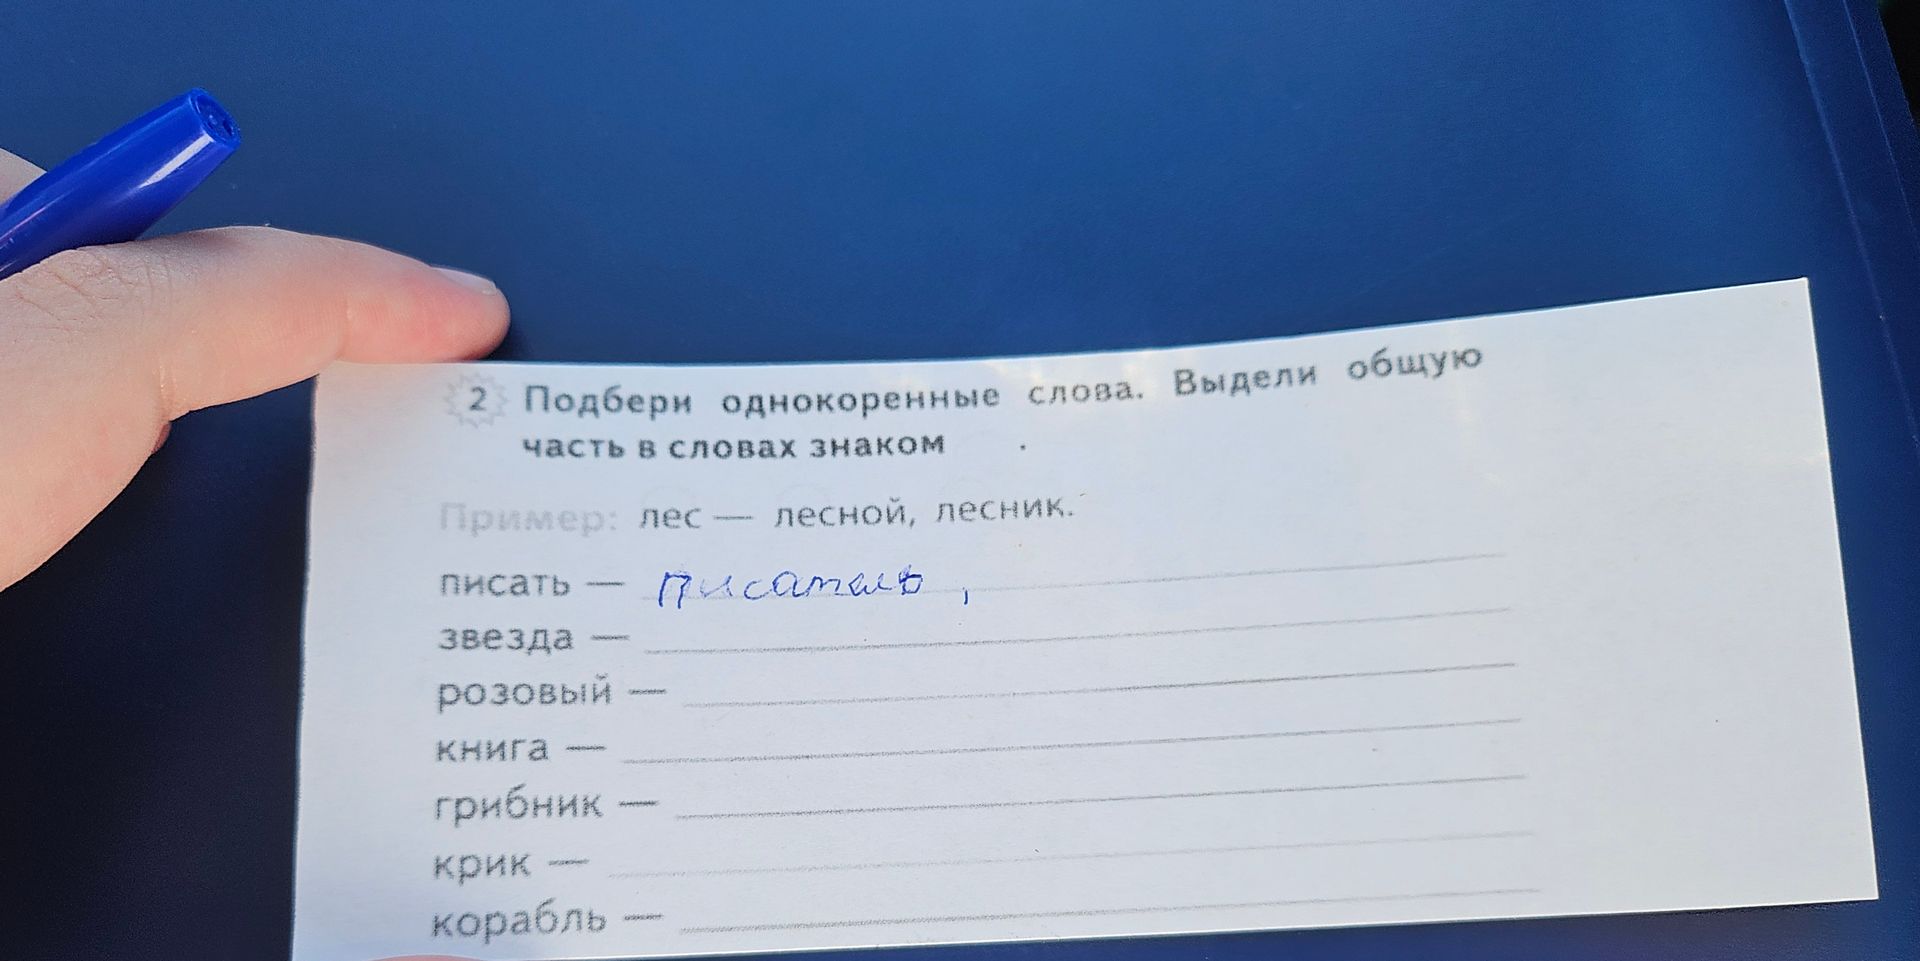 2 Подбери однокоренные слова. Выдели общую
часть в словах знаком .
Пример: лес — лесной, лесник.
писать — писатель,
звезда —
розовый —
книга —
грибник —
крик —
корабль —